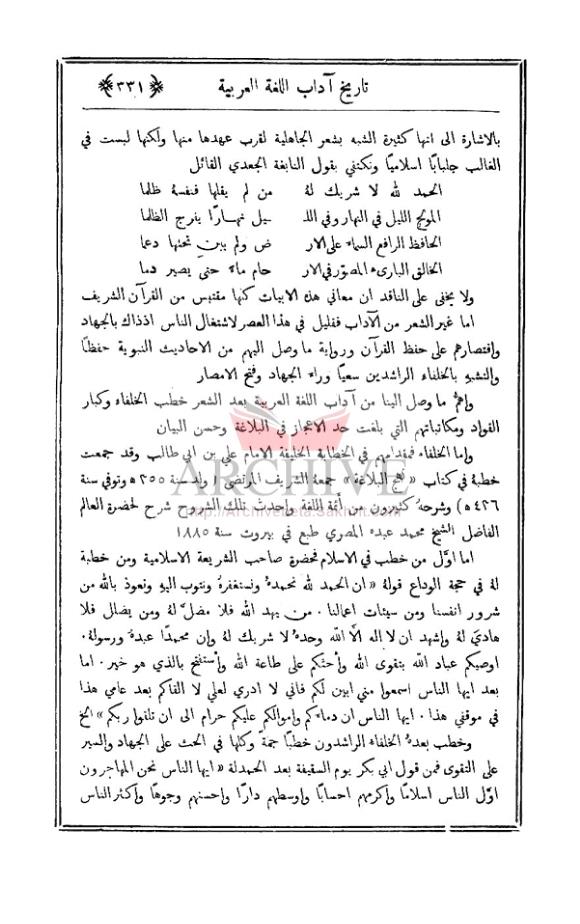 تاريخ آداب اللغة العربية ﴿٣٣١﴾
بالاشارة الى انها كثيرة الشبه بشعر الجاهلية لقرب عهدها منها ولكنها لبست في
الغالب جلبابًا اسلاميًا ونكتفي بقول النابغة الجعدي القائل
الحمد لله لا شريك لهُ من لم يقلها فنفسهُ ظلما
المولج الليل في النهار وفي الليـ ـيل نهـارًا يفرج الظلما
الحافظ الرافع السماء على الار ض ولم يبنِ تحتها دعما
الخالق البارىء المصوّر في الار حام ماء حتى يصير دما
ولا يخفى على الناقد ان معاني هذه الابيات كلها مقتبس من القرآن الشريف
اما غير الشعر من الآداب فقليل في هذا العصر لاشتغال الناس اذذاك بالجهاد
واقتصارهم على حفظ القرآن ورواية ما وصل اليهم من الاحاديث النبوية حفظًا
والتشبه بالخلفاء الراشدين سعيًا وراء الجهاد وفتح الامصار
واهمُّ ما وصل الينا من آداب اللغة العربية بعد الشعر خطب الخلفاء وكبار
القواد ومكاتباتهم التي بلغت حد الاعجاز في البلاغة وحسن البيان
واما الخلفاء فمقدامهم في الخطابة الخليفة الامام علي بن ابي طالب وقد جمعت
خطبهُ في كتاب « نهج البلاغة » جمعهُ الشريف المرتضى ( ولد سنة ٣٥٥ ه وتوفي سنة
٤٣٦ ه ) وشرحهُ كثيرون من أئمة اللغة واحدث تلك الشروح شرح لحضرة العالم
الفاضل الشيخ محمد عبده المصري طبع في بيروت سنة ١٨٨٥
اما اوّل من خطب في الاسلام فحضرة صاحب الشريعة الاسلامية ومن خطبة
لهُ في حجة الوداع قولهُ « ان الحمد لله نحمدهُ ونستغفرهُ ونتوب اليهِ ونعوذ بالله من
شرور انفسنا ومن سيئات اعمالنا . من يهد الله فلا مضلَّ لهُ ومن يضلل فلا
هاديَ لهُ واشهد ان لا اله الا الله وحدهُ لا شريك لهُ وان محمدًا عبدهُ ورسولهُ .
اوصيكم عباد الله بتقوى الله وأحثكم على طاعة الله وأستفتح بالذي هو خير . اما
بعد ايها الناس اسمعوا مني ابين لكم فاني لا ادري لعلي لا القاكم بعد عامي هذا
في موقفي هذا . ايها الناس ان دماءكم واموالكم عليكم حرام الى ان تلقوا ربكم » الخ
وخطب بعدهُ الخلفاء الراشدون خطبًا جمةً وكلها في الحث على الجهاد والسير
على التقوى فمن قول ابي بكر يوم السقيفة بعد الحمدلة « ايها الناس نحن المهاجرون
اوّل الناس اسلامًا وأكرمهم احسابًا واوسطهم دارًا واحسنهم وجوهًا وأكثر الناس
ARCHIVE
http://Archivebeta.Sakhrit.com